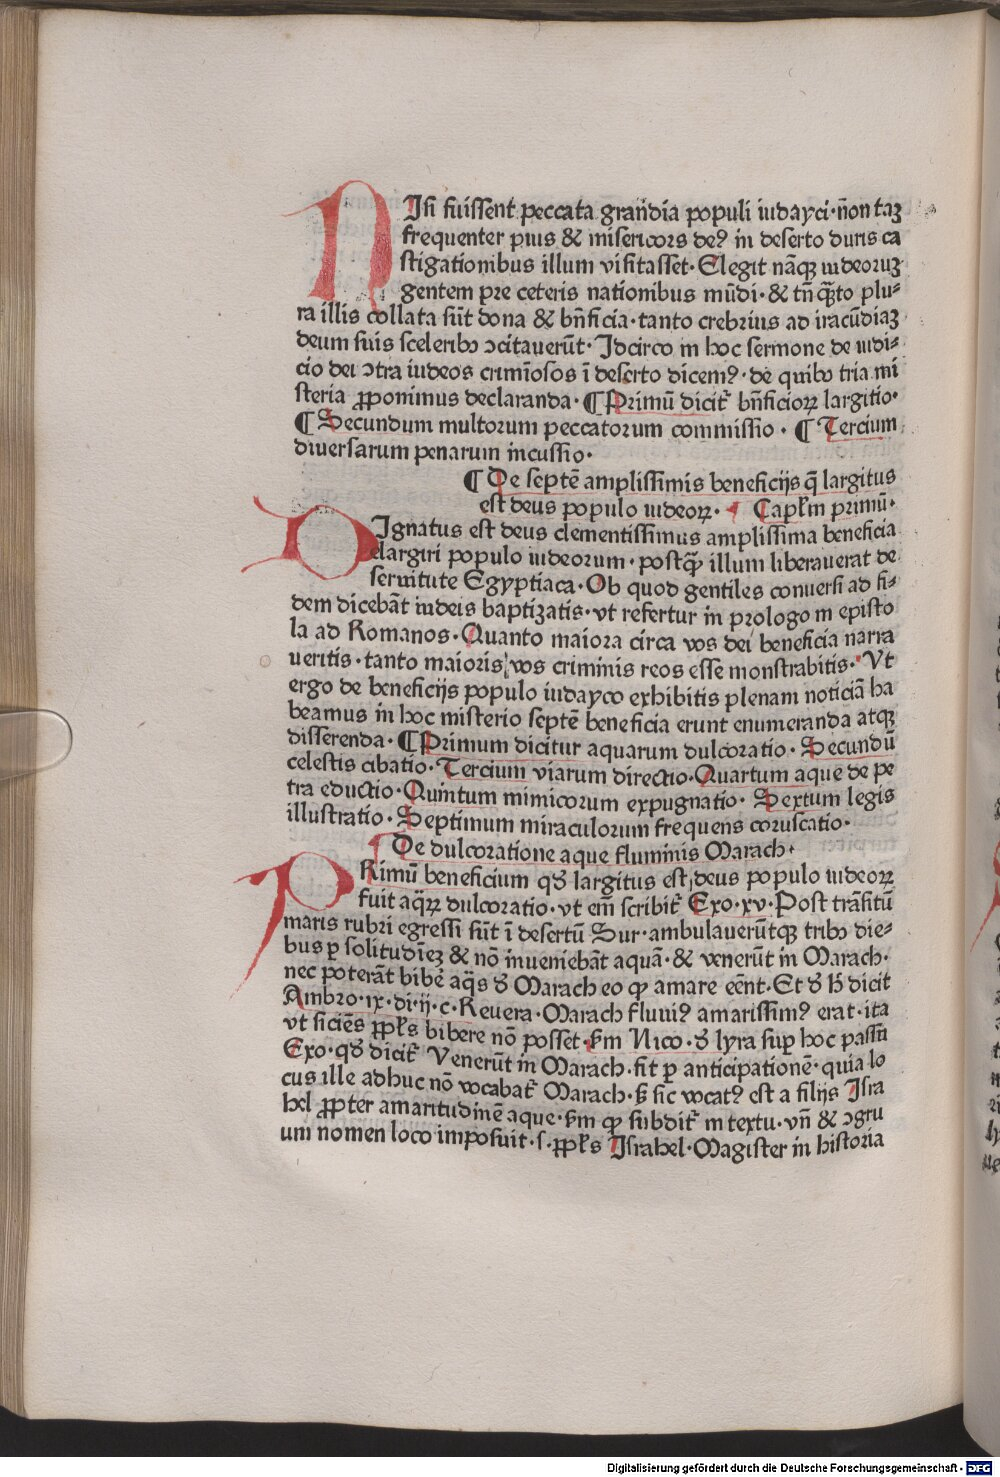 NIsi fuissent peccata grandia populi iudayci·non taʒ
frequenter pius & misericors deꝰ in deserto duris ca
stigationibus illum visitasset·Elegit nāqʒ iudeoruʒ
gentem pre ceteris nationibus mūdi·& tn̄ qᷓto plu-
ra illis collata sūt dona & bn̄ficia·tanto crebrius ad iracūdiaʒ
deum suis sceleribꝰ ↄcitauerūt·Idcirco in hoc sermone de iudi-
cio dei ↄtra iudeos crimīosos ī deserto dicemꝰ·de quibꝰ tria mi
steria ꝓponimus declaranda·¶Primū dicit᷑ bn̄ficioꝝ largitio·
¶Secundum multorum peccatorum commissio·¶Tercium
diuersarum penarum incussio·
¶De septē amplissimis beneficijs q̄ largitus
est deus populo iudeoꝝ· Capłm primū·
DIgnatus est deus clementissimus amplissima beneficia
elargiri populo iudeorum·postqᷓ illum liberauerat de
seruitute Egyptiaca·Ob quod gentiles conuersi ad fi-
dem dicebāt iudeis baptizatis·vt refertur in prologo in episto
la ad Romanos·Quanto maiora circa vos dei beneficia narra
ueritis·tanto maioris vos criminis reos esse monstrabitis·Vt
ergo de beneficijs populo iudayco exhibitis plenam noticiā ha
beamus in hoc misterio septē beneficia erunt enumeranda atqʒ
disserenda·¶Primum dicitur aquarum dulcoratio·Secundū
celestis cibatio·Tercium viarum directio·Quartum aque de pe
tra eductio·Quintum inimicorum expugnatio·Sextum legis
illustratio·Septimum miraculorum frequens coruscatio·
De dulcoratione aque fluminis Marach·
PRimū beneficium qď largitus est deus populo iudeoꝝ
fuit aq̄ꝝ dulcoratio·vt em̄ scribit᷑ Exo·xv·Post trāsitū
maris rubri egressi sūt ī desertū Sur·ambulauerūtqʒ tribꝰ die-
bus ꝑ solitudīeʒ & nō inueniebāt aquā·& venerūt in Marach·
nec poterāt bibe᷑ aq̄s ď Marach eo ꝙ amare eēnt·Et ď h̄ dicit
Ambro·ix·di·ij·c·Reuera·Marach fluuiꝰ amarissimꝰ erat·ita
vt siciēs ꝓpłs bibere nō posset·ẜm Nico·ď lyra sup hoc passū
Exo·qď dicit᷑ Venerūt in Marach·fit ꝑ anticipationē·quia lo
cus ille adhuc nō vocabat᷑ Marach·ẜ sic vocatꝰ est a filijs Isra
hel ꝓpter amaritudinē aque·ẜm ꝙ subdit᷑ in textu·vn̄ & ↄgru
um nomen loco imposuit·ſ·ꝓpłs Israhel·Magister in historia
Digitalisierung gefördert durch die Deutsche Forschungsgemeinschaft - DFG